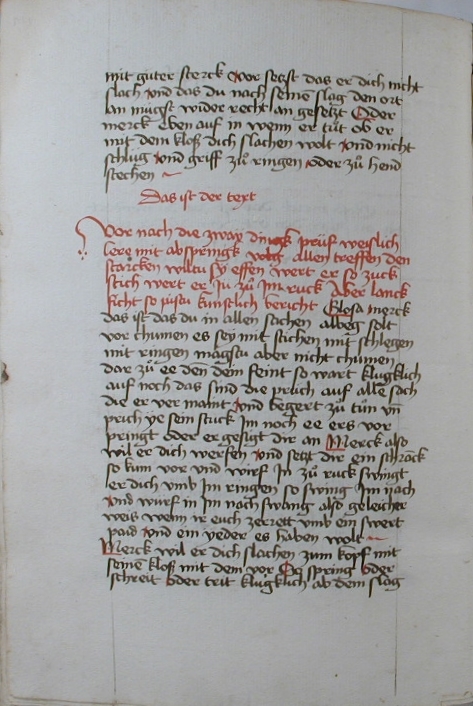 mit guter sterck vor setzst das er dich nicht
slach vnd das du nach seinē slag den ort
an mügst wider recht an gesetzt Oder
merck eben auf in wenn er tüt ob er
mit dem kloß dich slachen wolt vnd nicht
schlüg vnd griff zů ringen oder zů hend
stechen ~
Das ist der text
Vor nach die zway ding prüf weislich
lere mit abspringk volg allen treffen den
starcken wiltu sy effen wert er so zuck
stich wert er Ju zu Jm ruck Aber lanck
ficht so pistu künstlich bericht Glosa merck
das ist das du in allen sachen albeg solt
vor chumen es sey mit stichen mit schlegen
mit ringen magstu aber nicht chumen
dar zů ee den dem feint so wart klugklich
auf noch das sind die prüch auf alle sach
die er ver maint vnd begert zů tůn vn
prich ye sein stuck Jm noch ee ers vor
pringt oder er gesigt dir an Merck also
wil er dich werfen vnd setzt dir ein schrāck
so kum vor vnd würf Jn zů ruck swingt
er dich vmb Jm ringen so swing Jm nach
vnd würf in Jm nachswang also geleicher
weis wenn ir euch zerrett vmb ein swert
paid vnd ein yeder es haben wolt ~
Merck wil er dich slachen zum kopf mit
seinē kloß mit dem vor So spring oder
schreit oder trit klugklich ab dem slag